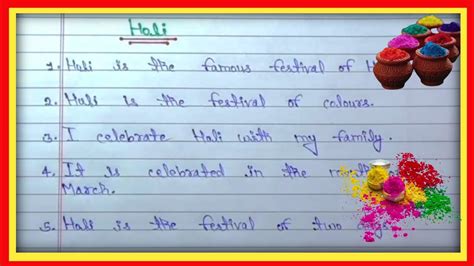 Holi
1. Holi is the famous festival of
2. Holi is the festival of colours.
3. I celebrate Holi with my family.
4. It is celebrated in the
March.
5. Holi is the festival of two